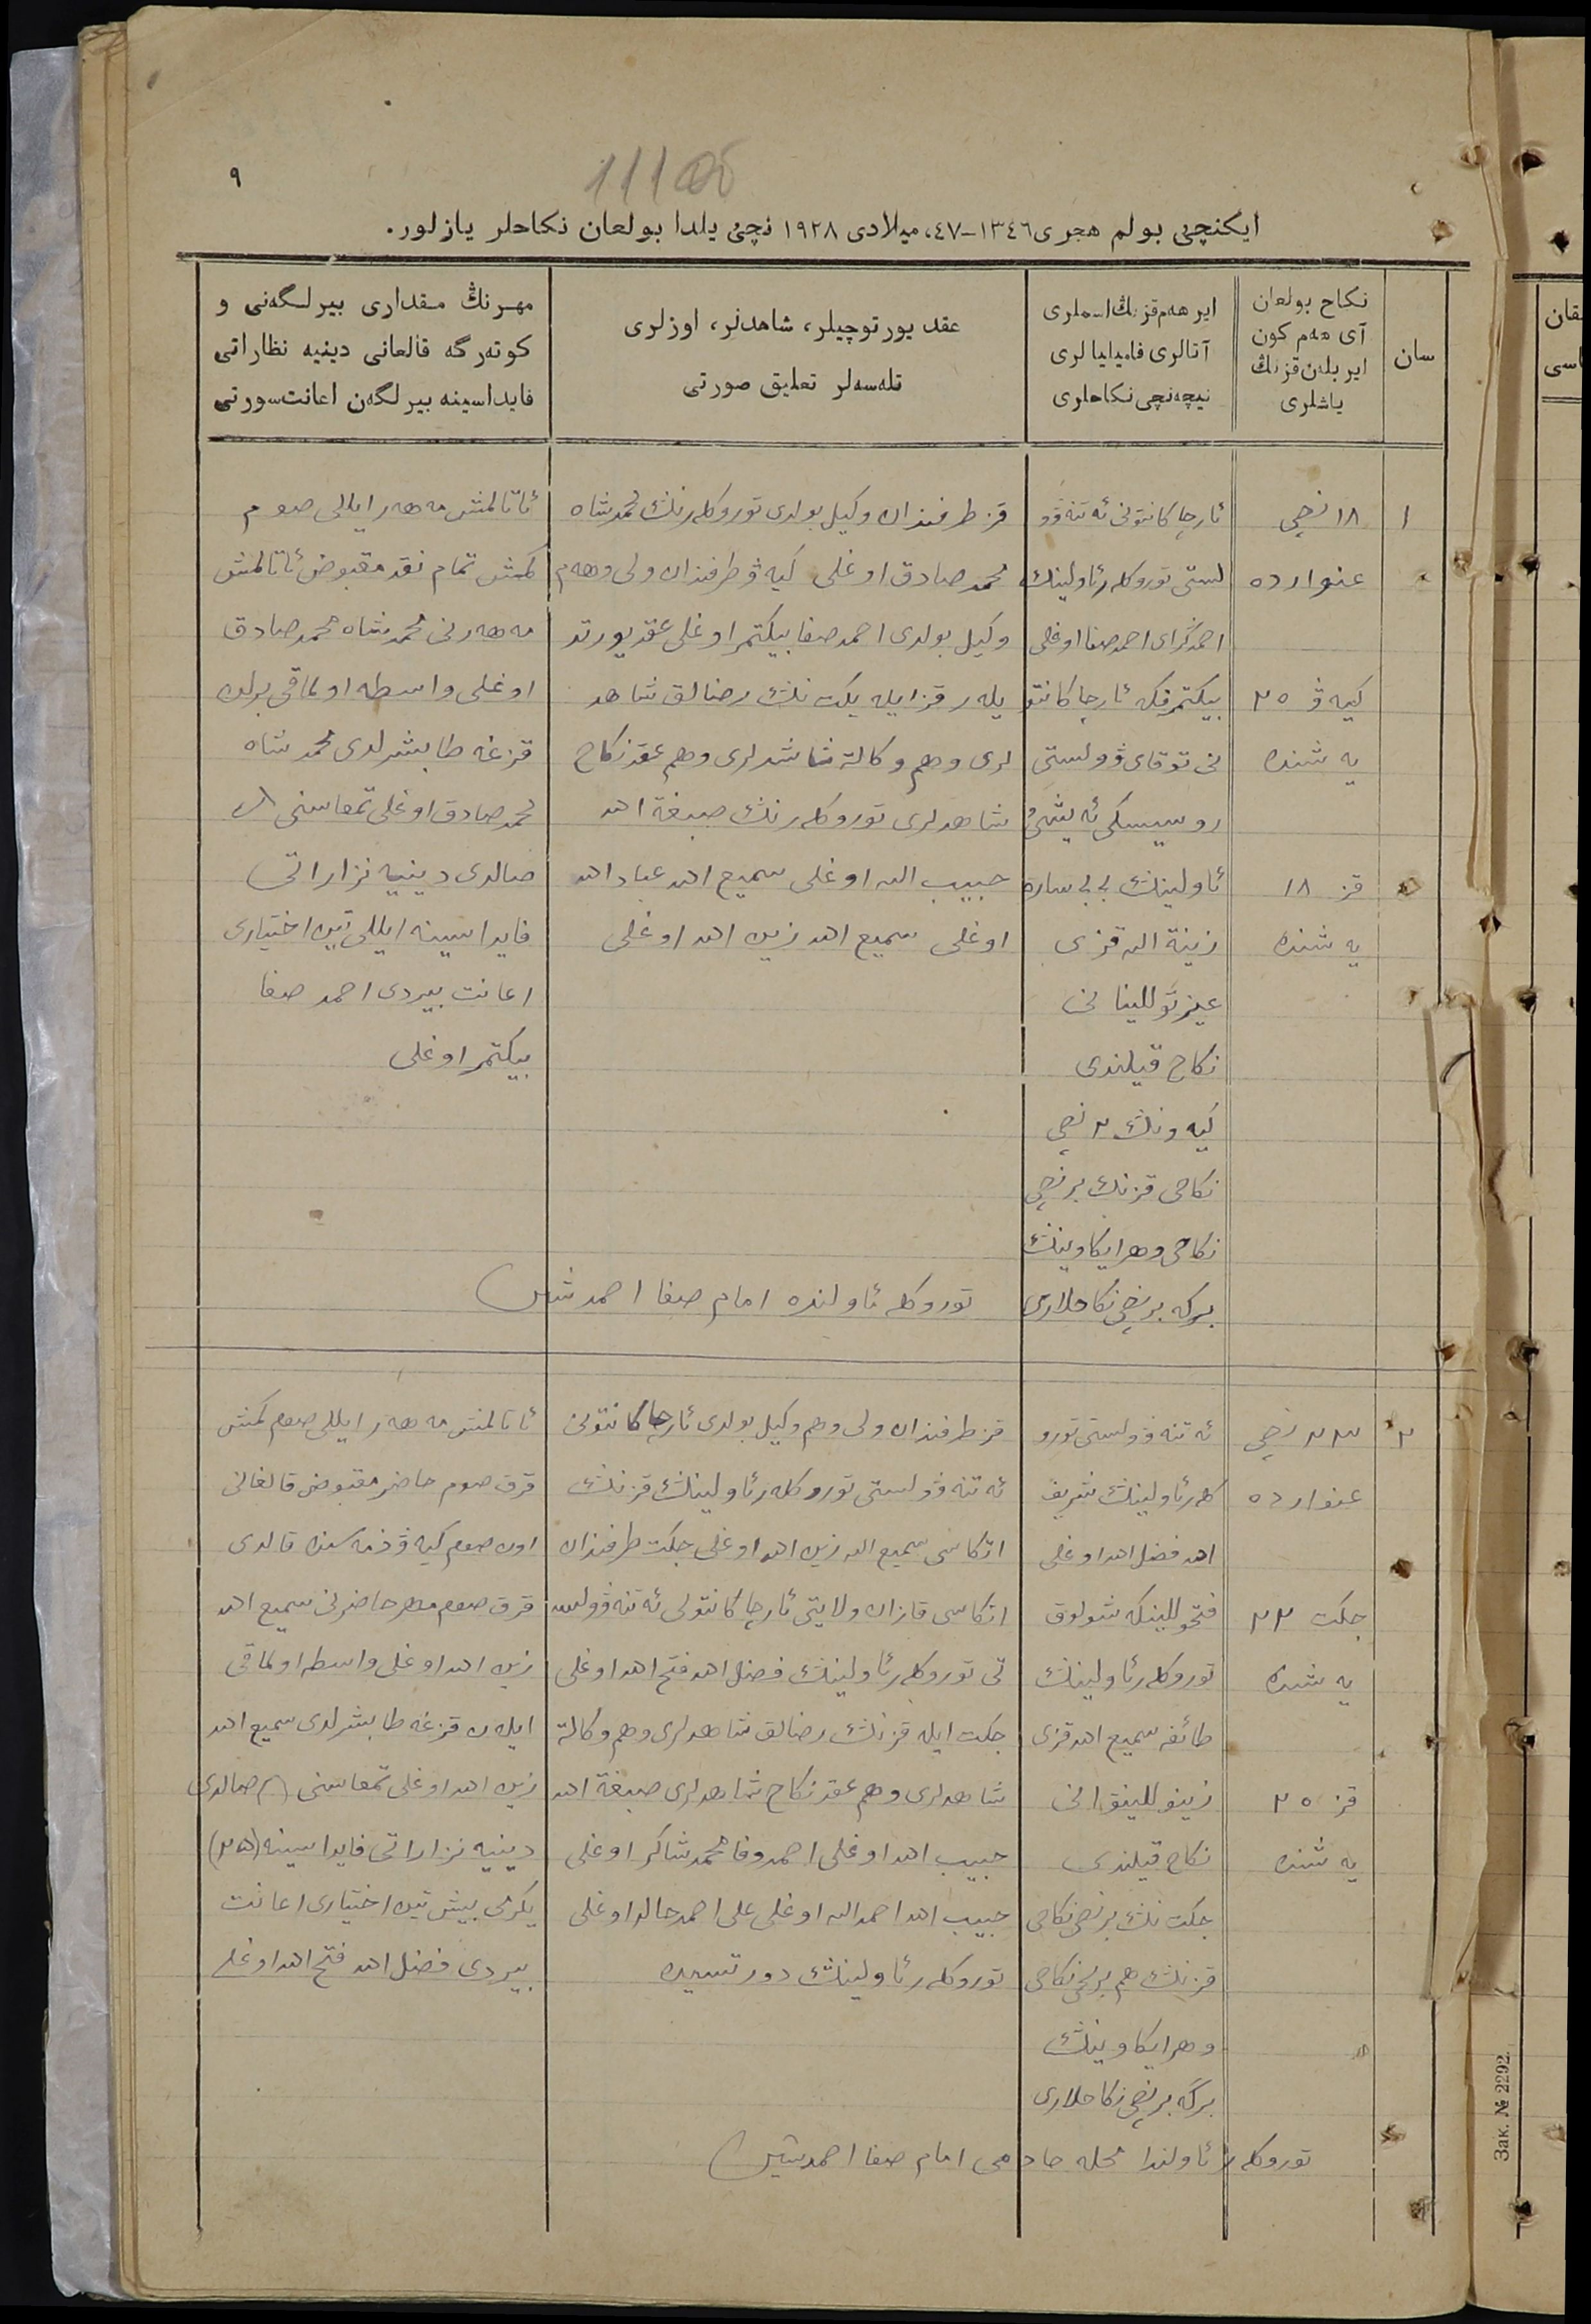 ٩
111
ایکنچی بولم هجری ١٣٤٦–٤٧، میلادی ١٩٢٨ نچی یلدا بولعان نکاحلر یازلور.
سان
نکاح بولعان
آی هەم کون
ایر بلەن قزنڭ
یاشلری
ایر هەم قزنڭ اسملری
آتالری فامیلیالری
نیچەنچی نکاحلری
عقد یورتوچیلر، شاهدلر، اوزلری
تلەسەلر تعلیق صورتی
مهرنڭ مقداری بیرلگەنی و
کوتەرگە قالعانی دینیه نظاراتی
فایداسینه بیرلگەن اعانت سورتی
١
١٨ نچی
عنوارده
کیەۋ ٢٥
یەشنده
قز ١٨
یەشنده
ئارچا کانتونی ئەتنە ۋو
لستی تورو کلەر ئاولینڭ
احمدگرای احمدصفا اوغلی
بیکتمرفکە ئارچا کانتو
نی توقای ۋولستی
ئاولینڭ بی بی ساره
زینة الله قزی
نکاح قیلندی
کیەونڭ ٢ نچی
نکاحی قزنڭ برنچی
نکاحی وهر ایکاوینڭ
برگه برنچی نکاحلاری
قز طرفندان وکیل بولدی تورو کلەرنڭ محمدشاه
محمدصادق اوغلی کیەۋ طرفندان ولی وهەم
وکیل بولدی احمدصفا بیکتمر اوغلی عقد یورتد
یلەر قز ایله یکت نڭ رضالق شاهد
لری وهم وکالة شاهدلری وهم عقد نکاح
شاهدلری تورو کلەرنڭ صبغة الله
حبیب الله اوغلی سمیع الله عباد الله
اوغلی سمیع الله زین الله اوغلی
ئاتالمش مەهەر ایللی صوم
کمش تمام نقد مقبوض ئاتالمش
مەهەرنی محمدشاه محمدصادق
اوغلی واسطه اولماقی برلن
قزغه طابشرلدی محمدشاه
محمدصادق اوغلی تمعاسنی
صالدی دینیه نزاراتی
فایداسینه ایللی تین اختیاری
اعانت بیردی احمد صفا
بیکتمر اوغلی
تورو کلە ئاولنده امام صفا احمد
٢
٢٣ نچی
عنوارده
جکت ٢٢
یەشنده
قز ٢٥
یەشنده
ئەتنە ۋولستی تورو
کلەر ئاولینڭ شریف
الله فضل الله اوغلی
تورو کلەر ئاولینڭ
طائفه سمیع الله قزی
نکاح قیلندی
جکت نڭ برنچی نکاحی
قزنڭ هم برنچی نکاحی
وهر ایکاوینڭ
برگه برنچی نکاحلاری
قز طرفندان ولی وهم وکیل بولدی ئارچا کانتونی
ئەتنە ۋولستی تورو کلەر ئاولینڭ قزنڭ
اتکاسی سمیع الله زین الله اوغلی جکت طرفندان
اتکاسی قازان ولایتی ئارچا کانتونی ئەتنە ۋولس
تی تورو کلەر ئاولینڭ فضل الله فتح الله اوغلی
جکت ایله قزنڭ رضالق شاهدلری وهم وکالة
شاهدلری وهم عقد نکاح شاهدلری صبغة الله
حبیب الله اوغلی احمدوفا محمدشاکر اوغلی
حبیب الله احمدالله اوغلی علی احمد اوغلی
تورو کلەر ئاولینڭ دورتسین
ئاتالمش مەهەر ایللی صوم کمش
قرق صوم حاضر مقبوض قالغانی
اون صوم کیەۋ ذمەسنده قالدی
قرق صوم مهر حاضرنی سمیع الله
زین الله اوغلی واسطه اولماقی
ایلەن قزغه طابشرلدی سمیع الله
زین الله اوغلی تمعاسنی صالدی
دینیه نزاراتی فایداسینه (٢٥)
یکرمی بیش تین اختیاری اعانت
بیردی فضل الله فتح الله اوغلی
تورو کلەر ئاولندا محله خادمی امام صفا احمد
Зак. № 2292.